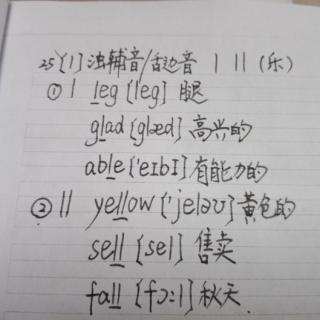 25 [l] 浊辅音/舌边音 l ll (乐)
① l leg [leg] 腿
glad [glæd] 高兴的
able ['eɪbl] 有能力的
② ll yellow ['jeləʊ] 黄色的
sell [sel] 售卖
fall [fɔ:l] 秋天